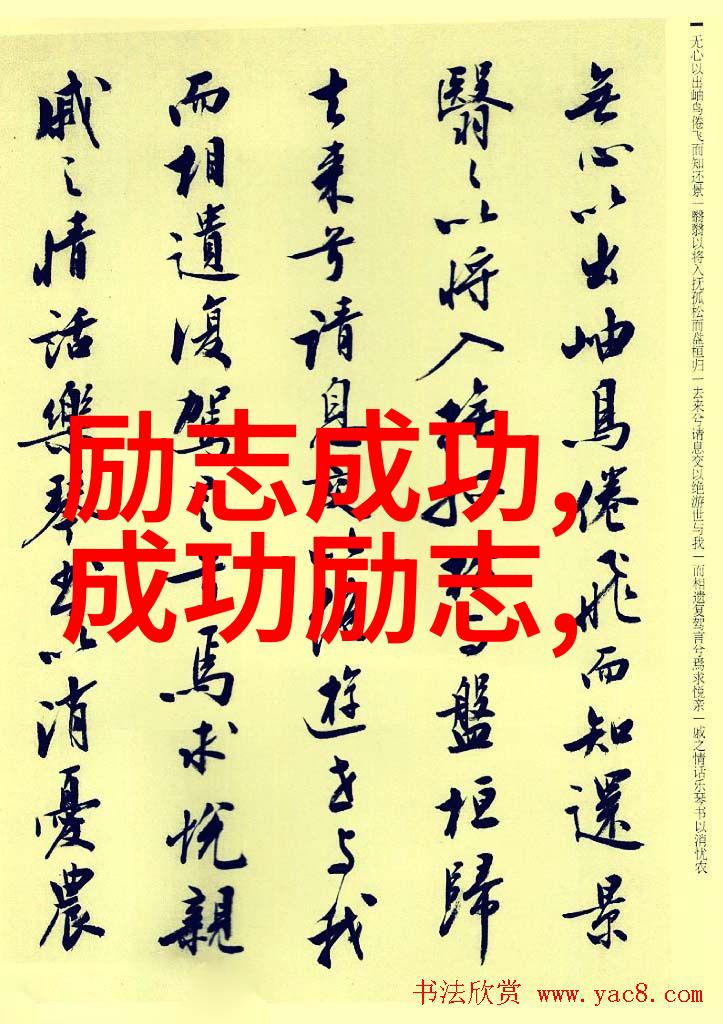 無心以出岫鳥倦飛而知還景
翳々以将入撫孤盤桓歸
去来兮請息交以遊世与我
而相遺復駕言兮焉求悅親
戚之情話樂琴書以消憂農
无心以出岫鸟倦飞而知还景一翳翳以将入抚孤松而盘桓归一去来兮请息交以绝游世与我一而相遗复驾言兮焉求悦亲一戚之情话乐琴书以消忧农
励志成功,
成功励志,
书法欣赏 www.yac8.com